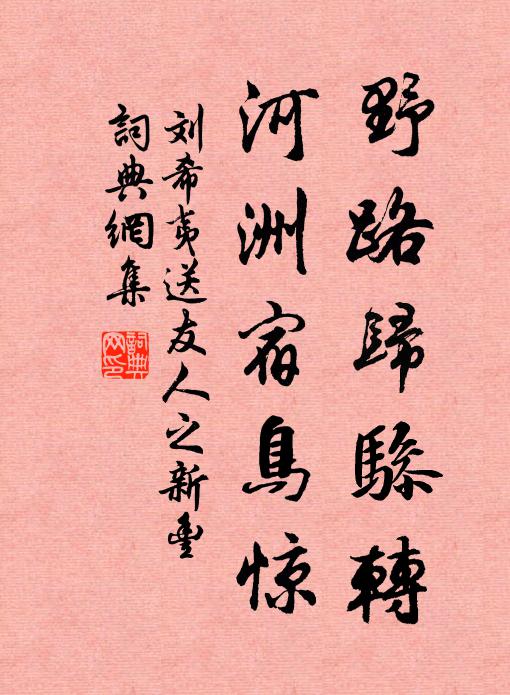 野路歸驂轉
河洲宿鳥惊
刘希夷送友人之新豊
詞典網集
詞典網印